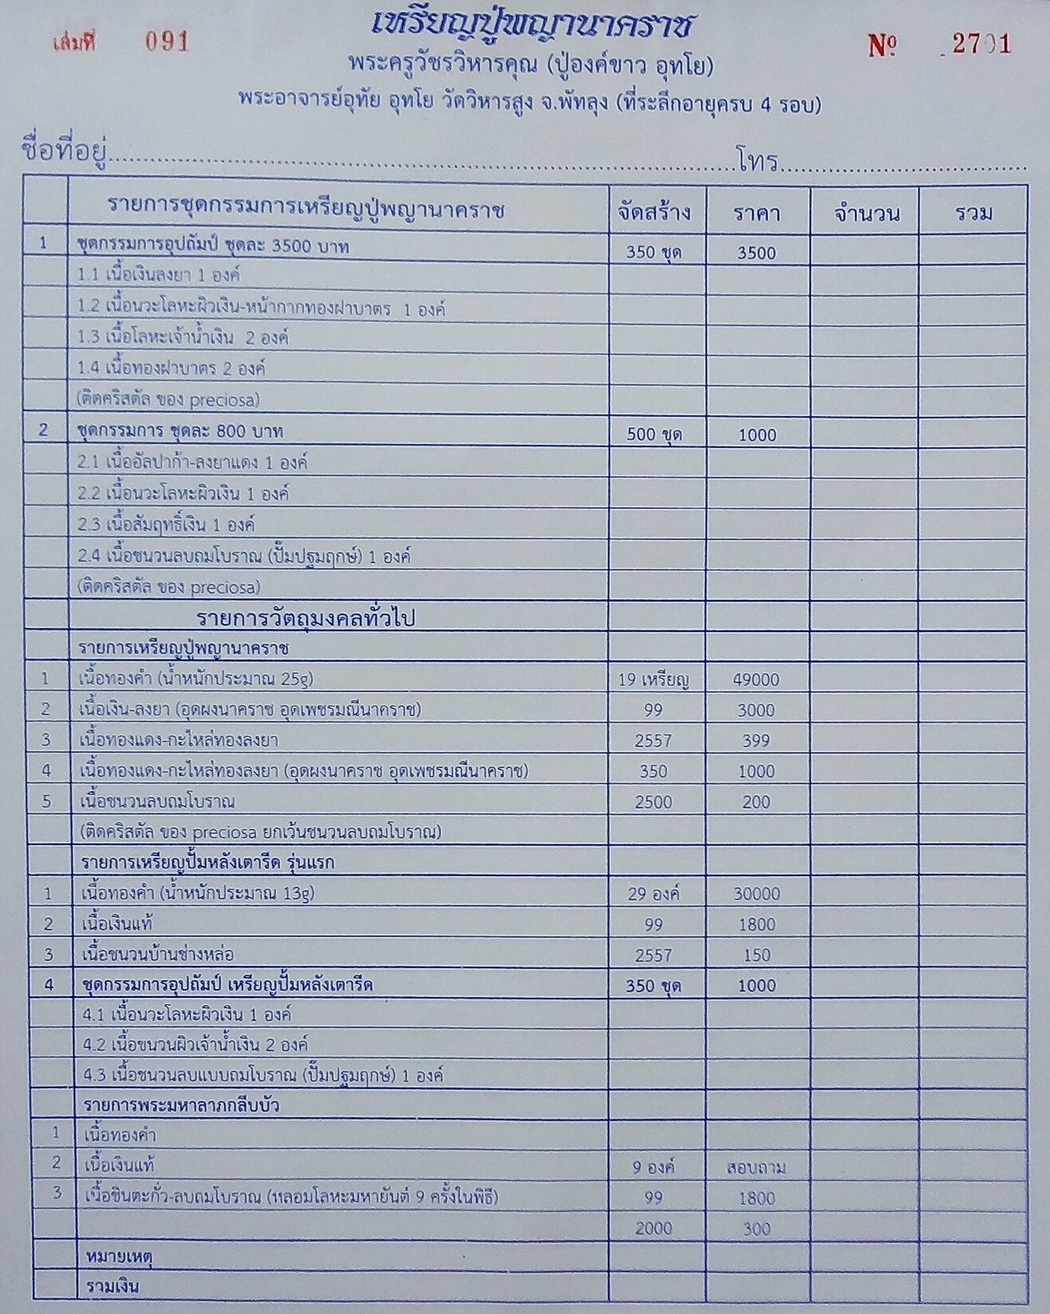 เหรียญปู่พญานาคราช
เล่มที่ 091
Nº 2701
พระครูวัชรวิหารคุณ (ปู่องค์ขาว อุทโย)
พระอาจารย์อุทัย อุทโย วัดวิหารสูง จ.พัทลุง (ที่ระลึกอายุครบ 4 รอบ)
ชื่อที่อยู่ โทร
รายการชุดกรรมการเหรียญปู่พญานาคราช จัดสร้าง ราคา จำนวน รวม
1 ชุดกรรมการอุปถัมป์ ชุดละ 3500 บาท 350 ชุด 3500
1.1 เนื้อเงินลงยา 1 องค์
1.2 เนื้อนวะโลหะผิวเงิน-หน้ากากทองฝาบาตร 1 องค์
1.3 เนื้อโลหะเจ้าน้ำเงิน 2 องค์
1.4 เนื้อทองฝาบาตร 2 องค์
(ติดคริสตัล ของ preciosa)
2 ชุดกรรมการ ชุดละ 800 บาท 500 ชุด 1000
2.1 เนื้ออัลปาก้า-ลงยาแดง 1 องค์
2.2 เนื้อนวะโลหะผิวเงิน 1 องค์
2.3 เนื้อสัมฤทธิ์เงิน 1 องค์
2.4 เนื้อชนวนลบถมโบราณ (ปั๊มปฐมฤกษ์) 1 องค์
(ติดคริสตัล ของ preciosa)
รายการวัตถุมงคลทั่วไป
รายการเหรียญปู่พญานาคราช
1 เนื้อทองคำ (น้ำหนักประมาณ 25g) 19 เหรียญ 49000
2 เนื้อเงิน-ลงยา (อุดผงนาคราช อุดเพชรมณีนาคราช) 99 3000
3 เนื้อทองแดง-กะไหล่ทองลงยา 2557 399
4 เนื้อทองแดง-กะไหล่ทองลงยา (อุดผงนาคราช อุดเพชรมณีนาคราช) 350 1000
5 เนื้อชนวนลบถมโบราณ 2500 200
(ติดคริสตัล ของ preciosa ยกเว้นชนวนลบถมโบราณ)
รายการเหรียญปั้มหลังเตารีด รุ่นแรก
1 เนื้อทองคำ (น้ำหนักประมาณ 13g) 29 องค์ 30000
2 เนื้อเงินแท้ 99 1800
3 เนื้อชนวนบ้านช่างหล่อ 2557 150
4 ชุดกรรมการอุปถัมป์ เหรียญปั้มหลังเตารีด 350 ชุด 1000
4.1 เนื้อนวะโลหะผิวเงิน 1 องค์
4.2 เนื้อชนวนผิวเจ้าน้ำเงิน 2 องค์
4.3 เนื้อชนวนลบแบบถมโบราณ (ปั๊มปฐมฤกษ์) 1 องค์
รายการพระมหาลาภกลีบบัว
1 เนื้อทองคำ
2 เนื้อเงินแท้ 9 องค์ สอบถาม
3 เนื้อชินตะกั่ว-ลบถมโบราณ (หลอมโลหะมหายันต์ 9 ครั้งในพิธี) 99 1800
2000 300
หมายเหตุ
รวมเงิน